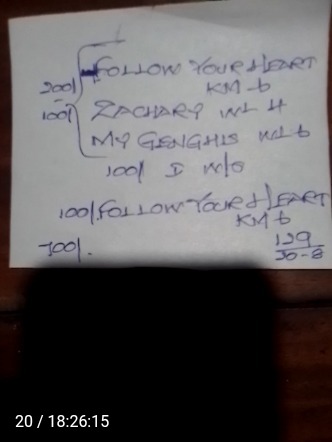 FOLLOW YOUR HEART
KM 6
200/
100/
ZACHARY WL 4
MY GENGHIS WL 6
100/ I W/O
100/ FOLLOW YOUR HEART
KM 6
700/.
129
30-8
20 / 18:26:15